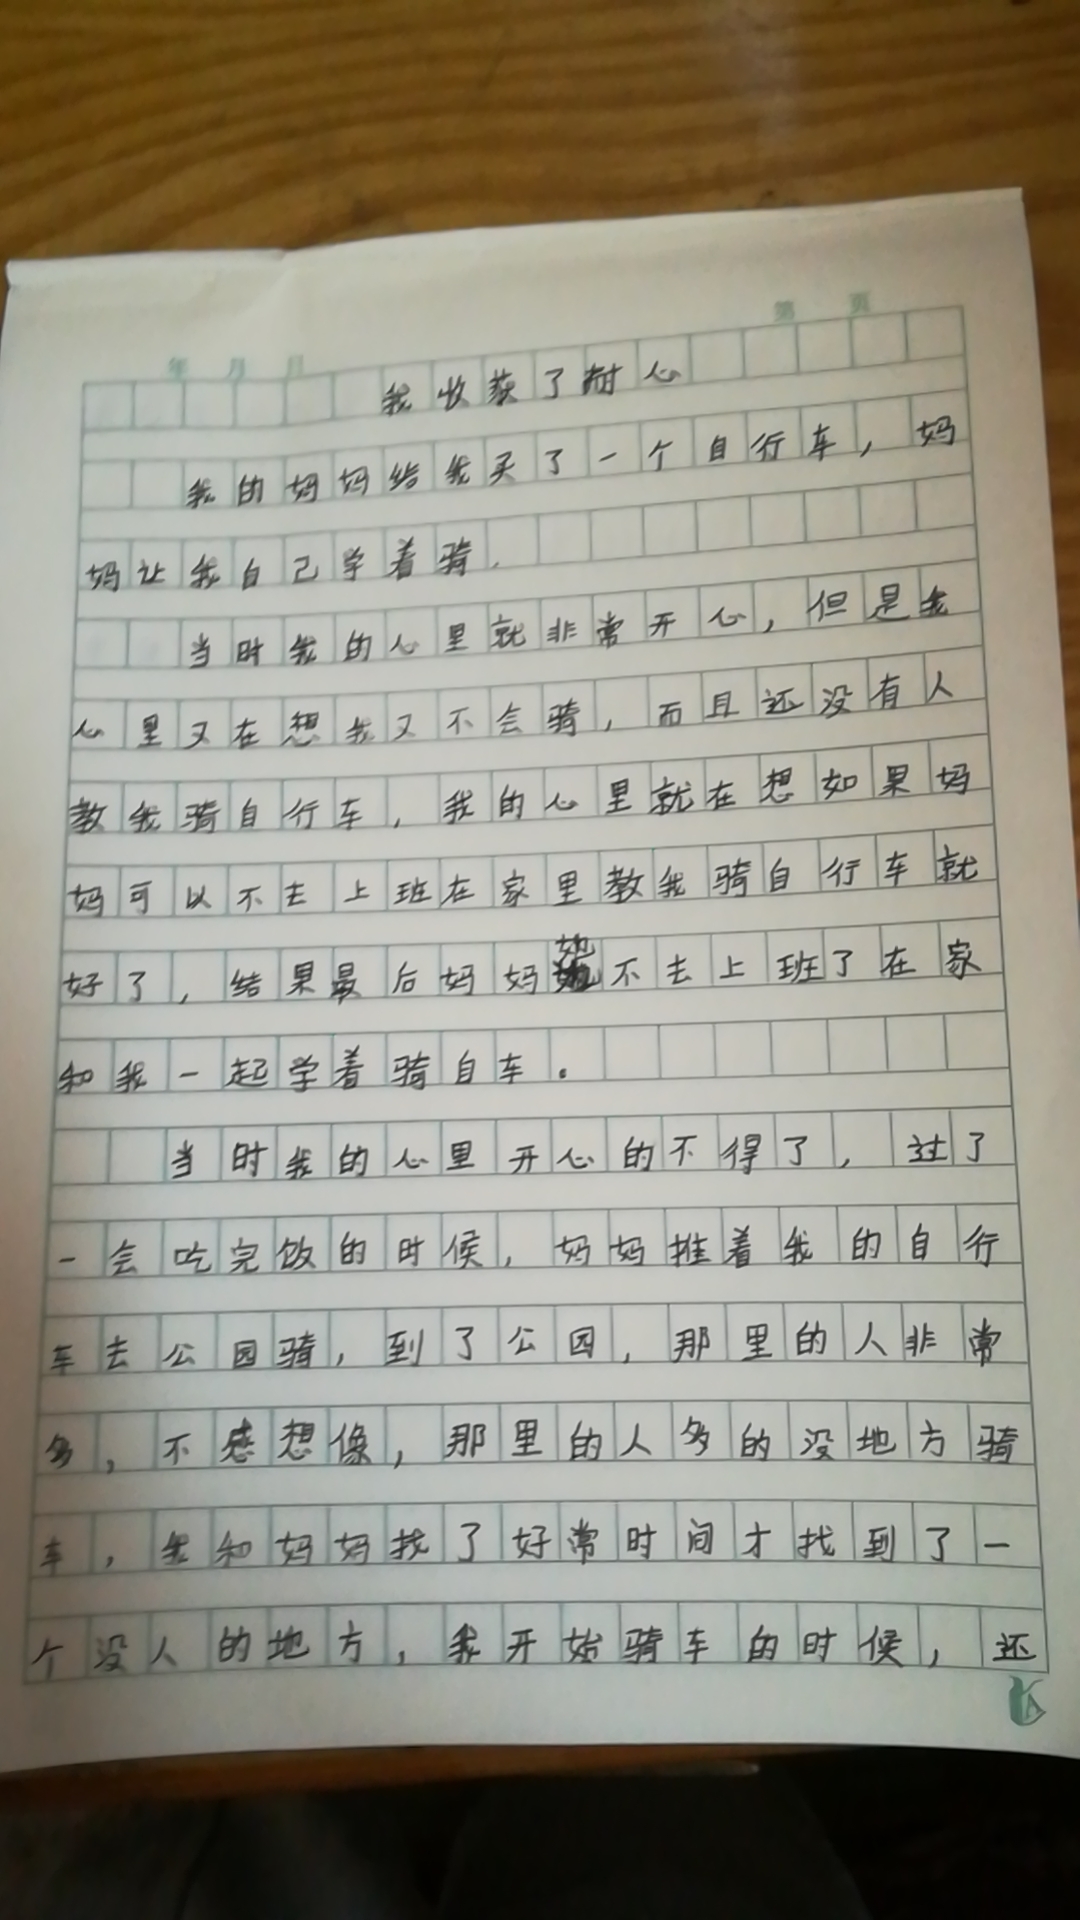 第 页
年 月 日
我收获了耐心
我的妈妈给我买了一个自行车，妈
妈让我自己学着骑.
当时我的心里就非常开心，但是我
心里又在想我又不会骑，而且还没有人
教我骑自行车，我的心里就在想如果妈
妈可以不去上班在家里教我骑自行车就
好了，结果最后妈妈她不去上班了在家
和我一起学着骑自车。
当时我的心里开心的不得了，过了
一会吃完饭的时候，妈妈推着我的自行
车去公园骑，到了公园，那里的人非常
多，不感想像，那里的人多的没地方骑
车，我和妈妈找了好常时间才找到了一
个没人的地方，我开始骑车的时候，还